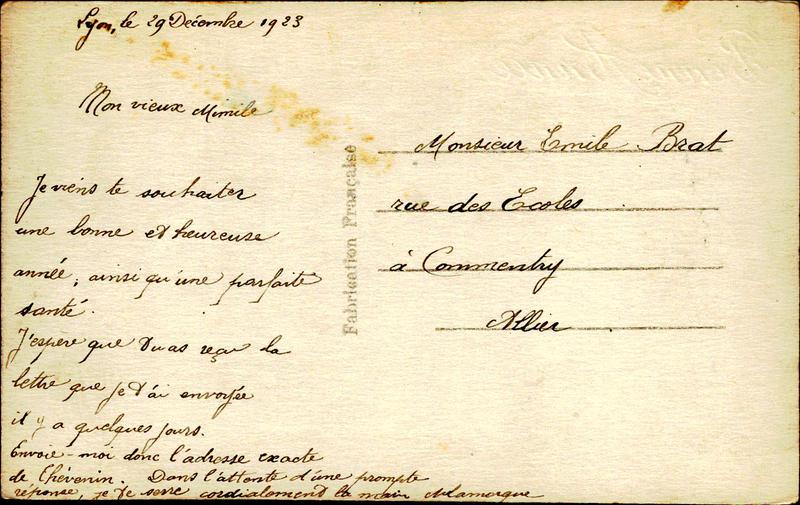 Lyon, le 29 Décembre 1923
Mon vieux Mimile
Je viens te souhaiter
une bonne et heureuse
année, ainsi qu'une parfaite
santé.
J'espère que tu as reçu la
lettre que je t'ai envoyée
il y a quelques jours.
Envoie-moi donc l'adresse exacte
de Thévenin. Dans l'attente d'une prompte
réponse, je te serre cordialement la main
Fabrication Française
Monsieur Emile Brat
rue des Ecoles
à Commentry
Allier